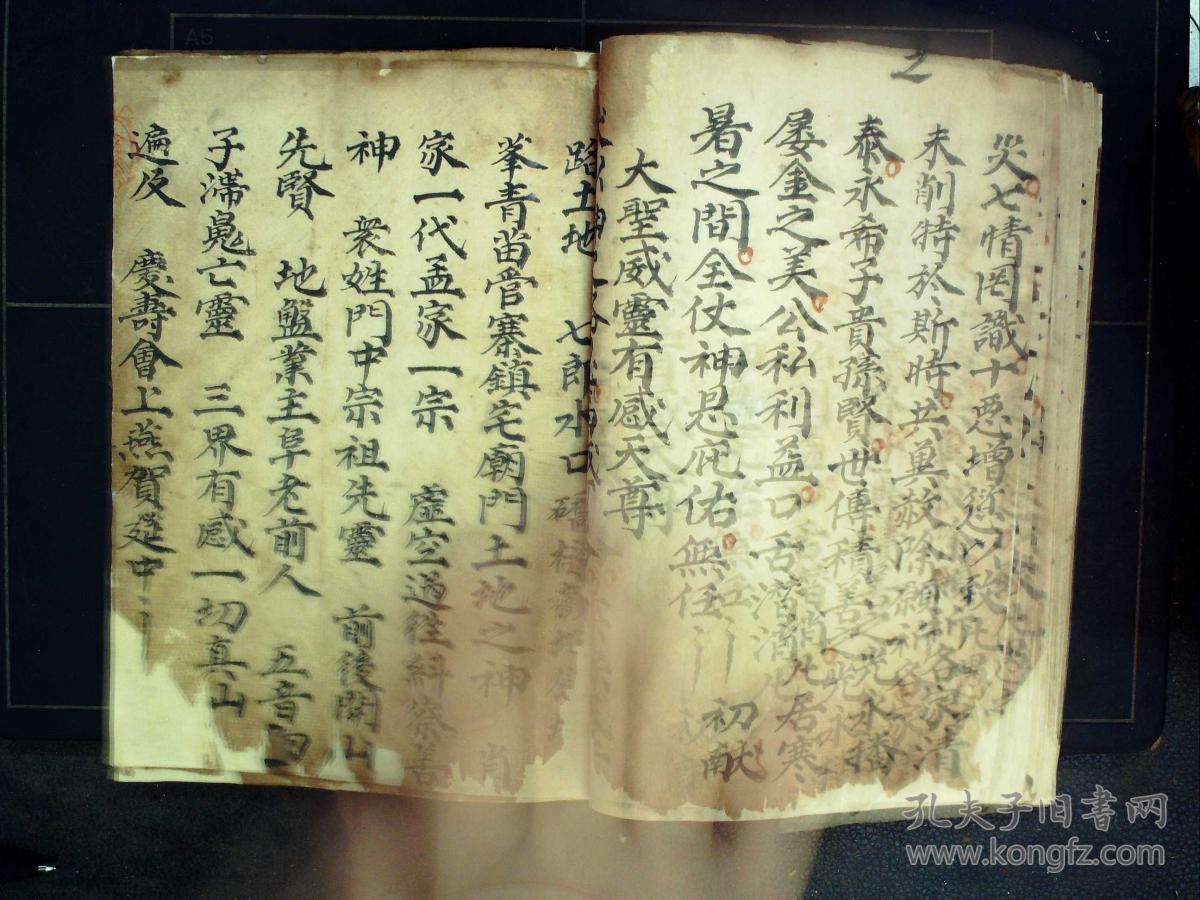 之
災七情罔識十惡增愆以致
未削特於斯時共冀赦除願祈各家清
泰永希子貴孫賢世傳積善之
屡金之美公私利益口舌潜消凡居寒
暑之間全仗神恩庇佑無任〻 初献
大聖威靈有感天尊
路土地 七郎水口
峯青苗管寨鎮宅廟門土地之神 肖
家一代孟家一宗 虚空過徃糾察善
神 衆姓門中宗祖先靈 前後開山
先賢 地盤業主阜老前人 五音
子滯鬼亡靈 三界有感一切真山
遍及 慶壽會上燕賀筵中〻
A5
孔夫子旧书网
www.kongfz.com